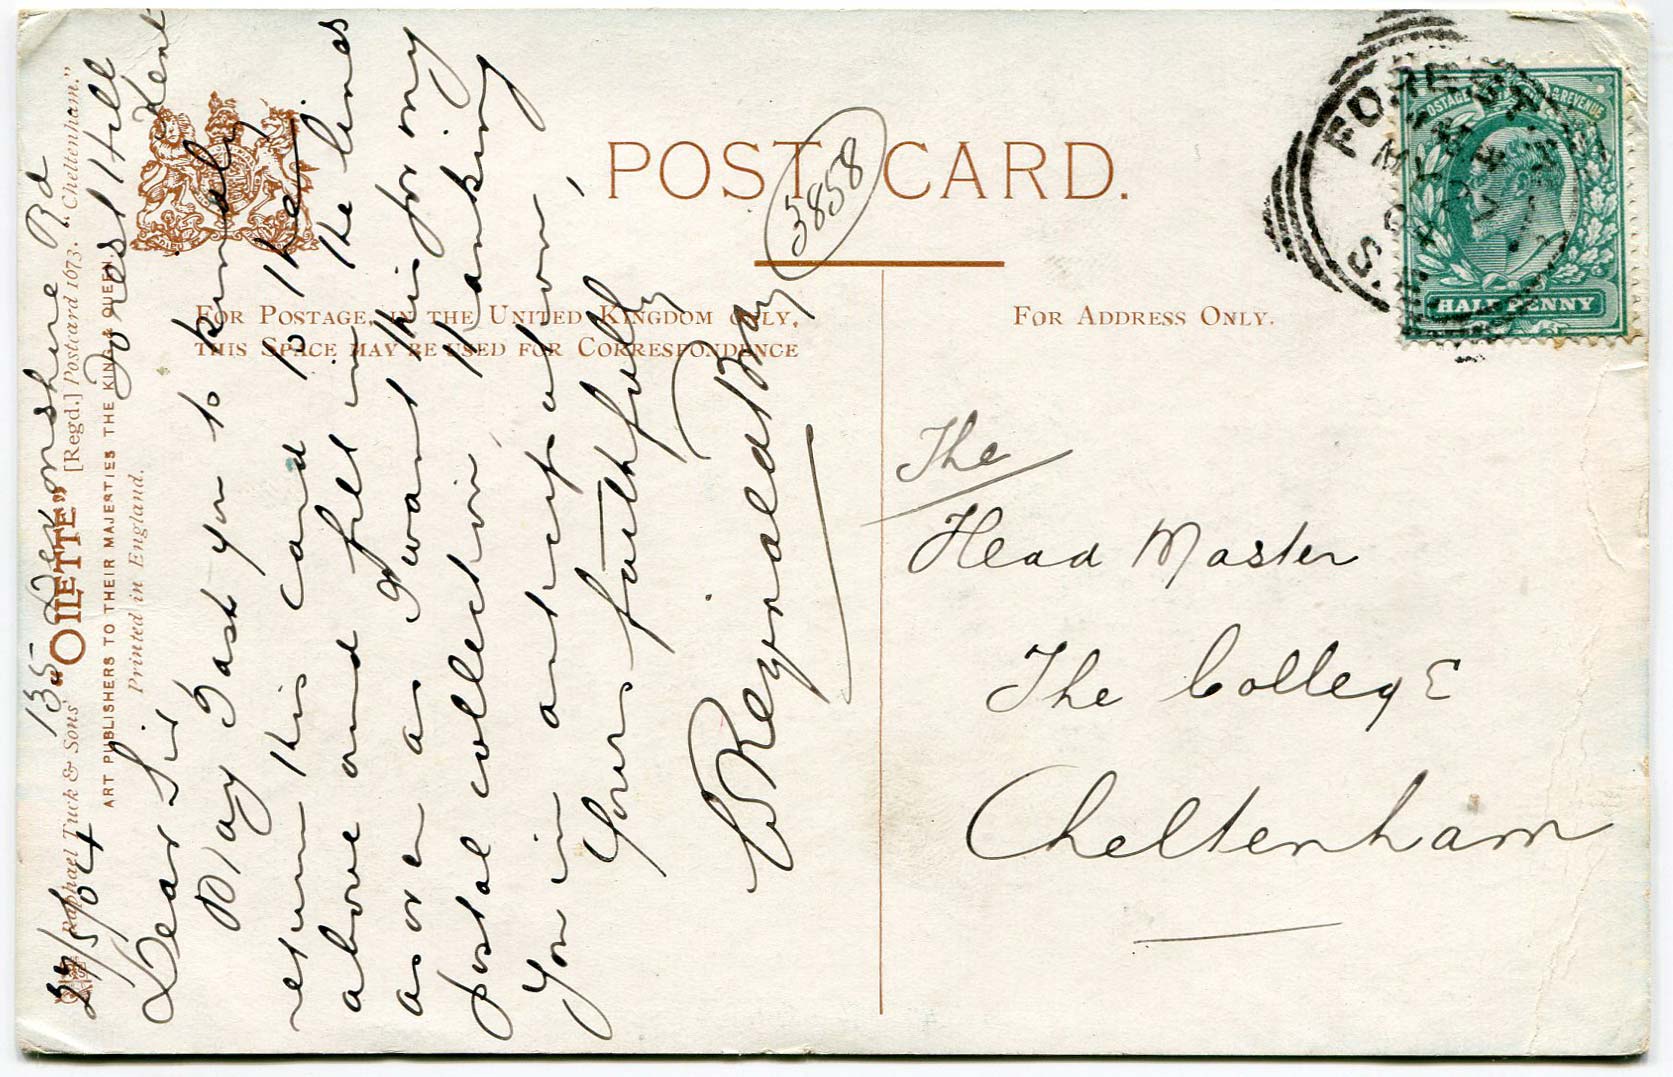 POST CARD.
3858
FOR POSTAGE, IN THE UNITED KINGDOM ONLY,
THIS SPACE MAY BE USED FOR CORRESPONDENCE
FOR ADDRESS ONLY.
POSTAGE & REVENUE
HALF PENNY
FOREST
S.E.
The
Head Master
The College
Cheltenham
Raphael Tuck & Sons' "OILETTE" [Regd.] Postcard 1673. "Cheltenham."
ART PUBLISHERS TO THEIR MAJESTIES THE KING & QUEEN.
Printed in England.
135 Devonshire Rd
Forest Hill
Kent
27/5/04
Dear Sir
May I ask you to kindly
return this card to the
above and fill in the lines
as on I want this for my
postal collection Thanking
You in anticipation,
Yours faithfully
W Reginald Bray